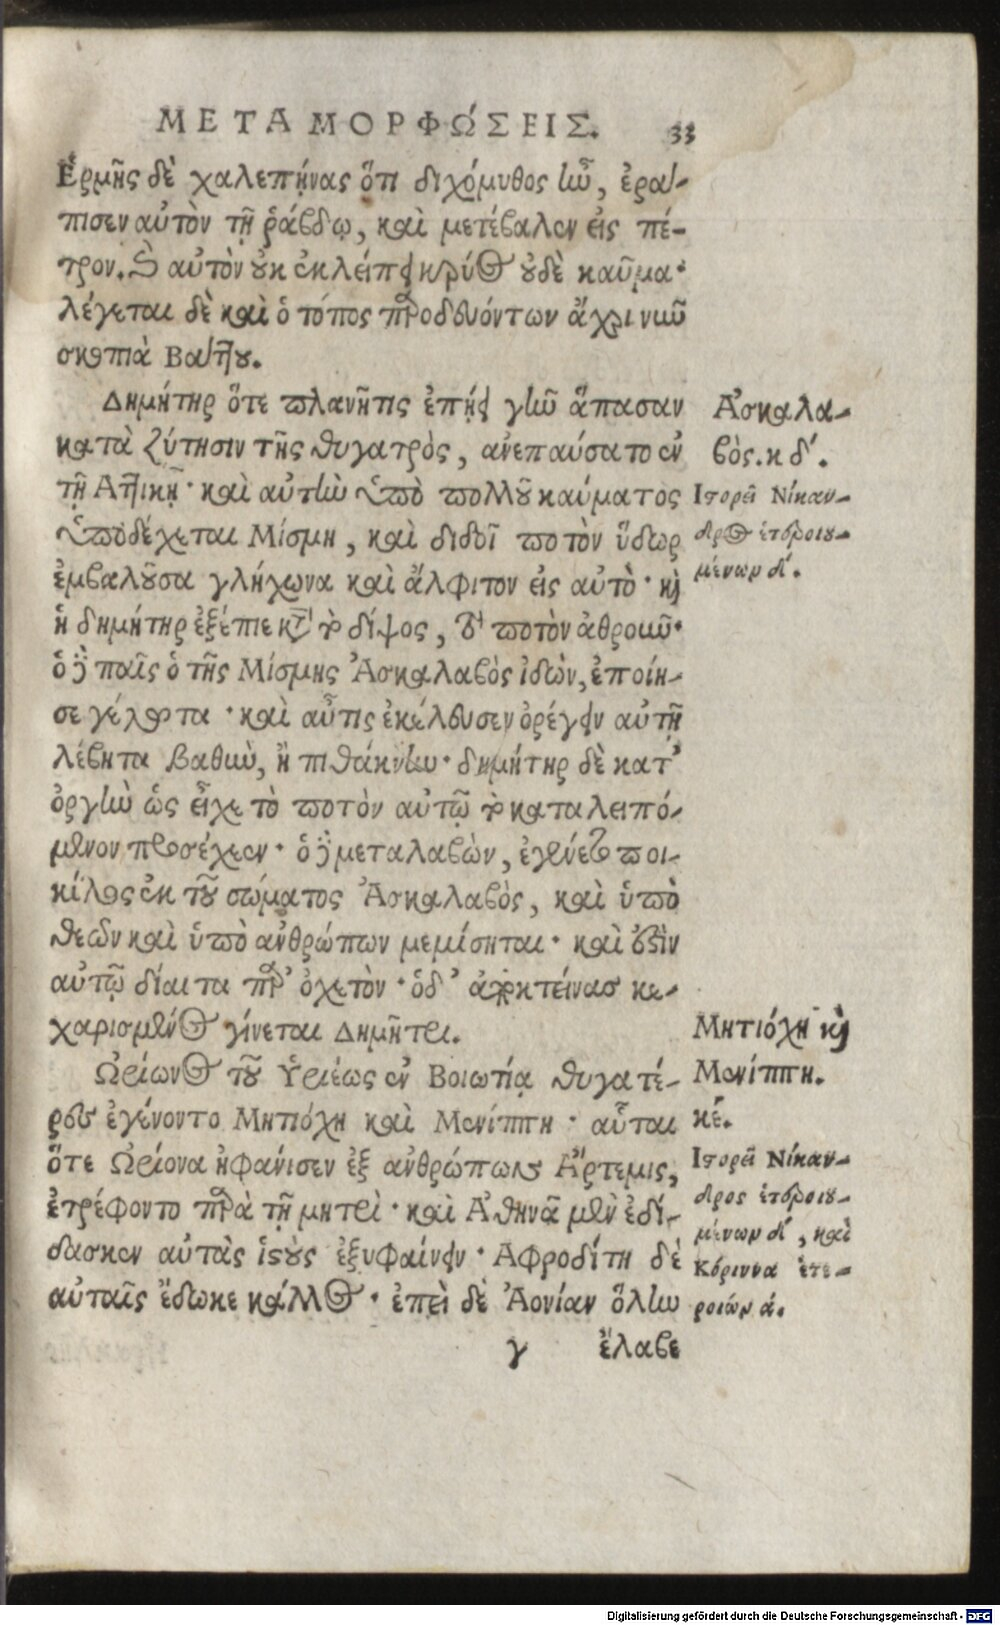 ΜΕΤΑΜΟΡΦΏΣΕΙΣ. 33
Ἑρμῆς δὲ χαλεπήνας ὅτι διχόμυθος ἦν, ἐρά-
πισεν αὐτὸν τῇ ῥάβδῳ, καὶ μετέβαλεν εἰς πέ-
τρον. Ὃ αὐτὸν οὐκ ἐκλείπει κρύος οὐδὲ καῦμα·
λέγεται δὲ καὶ ὁ τόπος παροδευόντων ἄχρι νιῦ
σκοπιὰ Βάττου.
Δημήτηρ ὅτε πλανῆτις ἐπῄει γῆν ἅπασαν
κατὰ ζύτησιν τῆς θυγατρὸς, ἀνεπαύσατο ἐν
τῇ Ἀττικῇ· καὶ αὐτὴν ὑπὸ πολλοῦ καύματος
ὑποδέχεται Μίσμη, καὶ διδοῖ ποτὸν ὕδωρ
ἐμβαλοῦσα γλήχωνα καὶ ἄλφιτον εἰς αὐτὸ· καὶ
ἡ δημήτηρ ἐξέπιε κατὰ τὸ δίψος, τὸ ποτὸν ἀθροιῦ·
ὁ δὲ παῖς ὁ τῆς Μίσμης Ἀσκαλαβὸς ἰδὼν, ἐποίη-
σε γέλωτα· καὶ αὖτις ἐκέλευσεν ὀρέγειν αὐτῇ
λέβητα βαθὺν, ἢ πιθάκνην· δημήτηρ δὲ κατ’
ὀργὴν ὡς εἶχε τὸ ποτὸν αὐτῷ τὸ καταλειπό-
μενον προσέχεεν· ὁ δὲ μεταλαβὼν, ἐγένετο ποι-
κίλος ἐκ τοῦ σώματος Ἀσκαλαβὸς, καὶ ὑπὸ
θεῶν καὶ ὑπὸ ἀνθρώπων μεμίσηται· καὶ ἔστιν
αὐτῷ δίαιτα παρ’ ὀχετὸν· ὁ δ’ ἀποκτείνας κε-
χαρισμένος γίνεται Δημήτρι.
Ὠρίωνος τοῦ Ὑριέως ἐν Βοιωτίᾳ θυγατέ-
ρες ἐγένοντο Μητιόχη καὶ Μενίππη· αὗται
ὅτε Ὠρίονα ἠφάνισεν ἐξ ἀνθρώπων Ἄρτεμις,
ἐτρέφοντο παρὰ τῇ μητρὶ· καὶ Ἀθηνᾶ μὲν ἐδί-
δασκεν αὐτὰς ἱστοὺς ἐξυφαίνειν· Ἀφροδίτη δὲ
αὐταῖς ἔδωκε κάλλος· ἐπεὶ δὲ Ἀονίαν ὅλην
γ ἔλαβε
Ἀσκαλα-
βὸς. κδ΄.
Ἱστορεῖ Νίκαν-
δρος ἑτεροιου-
μένων δ΄.
Μητιόχη καὶ
Μενίππη.
κέ.
Ἱστορεῖ Νίκαν-
δρος ἑτεροιου-
μένων δ΄, καὶ
Κόριννα ἑτε-
ροιών ά.
Digitalisierung gefördert durch die Deutsche Forschungsgemeinschaft - DFG